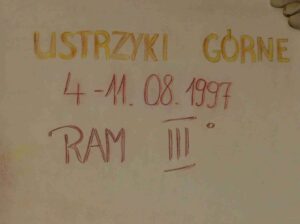 USTRZYKI GÓRNE
4-11.08.1997
RAM III°